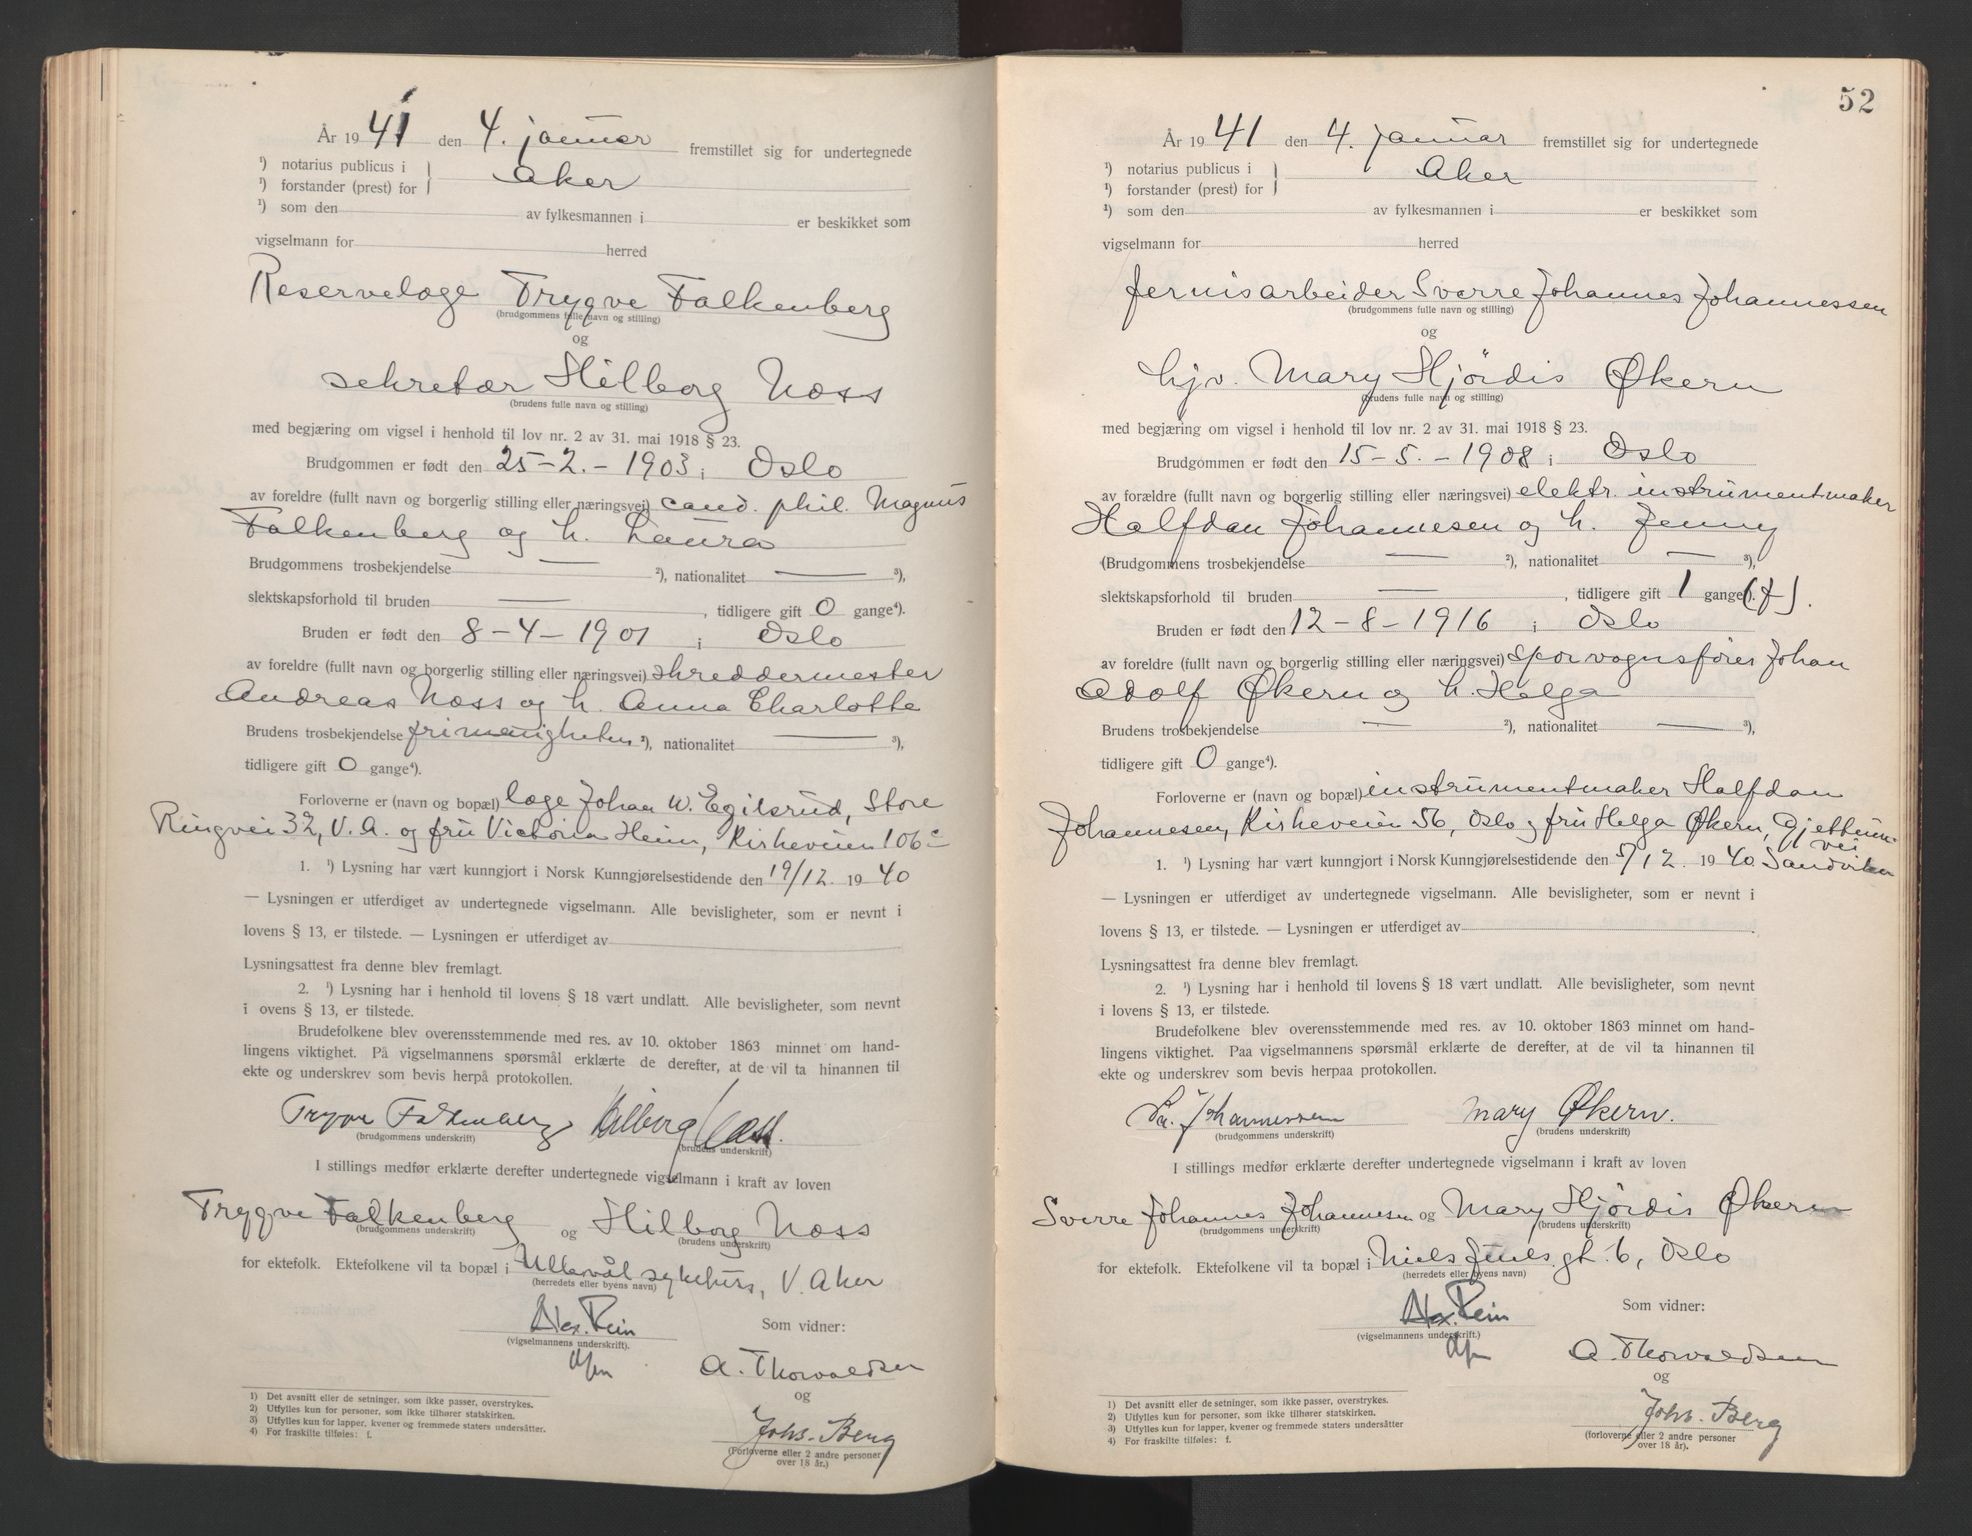 År 1941 den 4. januar fremstillet sig for undertegnede
¹) notarius publicus i
¹) forstander (prest) for } Aker
¹) som den av fylkesmannen i er beskikket som
vigselmann for herred
Reservelæge Trygve Falkenberg
(brudgommens fulle navn og stilling)
og
sekretær Hilborg Næss
(brudens fulle navn og stilling)
med begjæring om vigsel i henhold til lov nr. 2 av 31. mai 1918 § 23.
Brudgommen er født den 25-2.-1903 i Oslo
av foreldre (fullt navn og borgerlig stilling eller næringsvei) cand. phil. Magnus
Falkenberg og h. Laura
Brudgommens trosbekjendelse — ²), nationalitet — ³),
slektskapsforhold til bruden — , tidligere gift 0 gange⁴).
Bruden er født den 8-4-1901 i Oslo
av foreldre (fullt navn og borgerlig stilling eller næringsvei) skreddermester
Andreas Næss og h. Anna Charlotte
Brudens trosbekjendelse frimenigheten ²), nationalitet — ³),
tidligere gift 0 gange⁴).
Forloverne er (navn og bopæl) læge Johan W. Egilsrud, Store
Ringvei 32, V. A. og fru Victoria Heim, Kirkeveien 106 c
1. ¹) Lysning har vært kunngjort i Norsk Kunngjørelsestidende den 19/12. 1940
— Lysningen er utferdiget av undertegnede vigselmann. Alle bevisligheter, som er nevnt i
lovens § 13, er tilstede. — Lysningen er utferdiget av
Lysningsattest fra denne blev fremlagt.
2. ¹) Lysning har i henhold til lovens § 18 vært undlatt. Alle bevisligheter, som nevnt
i ovens § 13, er tilstede.
Brudefolkene blev overensstemmende med res. av 10. oktober 1863 minnet om hand-
lingens viktighet. På vigselmannens spørsmål erklærte de derefter, at de vil ta hinannen til
ekte og underskrev som bevis herpå protokollen.
Trygve Falkenberg Hilborg Næss.
(brudgommens underskrift) (brudens underskrift)
I stillings medfør erklærte derefter undertegnede vigselmann i kraft av loven
Trygve Falkenberg og Hilborg Næss
(brudgommens underskrift) (brudens underskrift)
for ektefolk. Ektefolkene vil ta bopæl i Ullevål sykehus, V. Aker
(herredets eller byens navn)
Alex. Rein Som vidner:
(vigselmannens underskrift).
A. Thorvaldsen
og
Johs. Berg
(Forloverne eller 2 andre personer
over 18 år.)
1) Det avsnitt eller de setninger, som ikke passer, overstrykes.
2) Utfylles kun for personer, som ikke tilhører statskirken.
3) Utfylles kun for lapper, kvener og fremmede staters undersåtter.
4) For fraskilte tilføies: f.
52
År 1941 den 4. januar fremstillet sig for undertegnede
¹) notarius publicus i
¹) forstander (prest) for } Aker
¹) som den av fylkesmannen i er beskikket som
vigselmann for herred
fernisarbeider Sverre Johannes Johannessen
(brudgommens fulle navn og stilling)
og
hjv. Mary Hjördis Økern
(brudens fulle navn og stilling)
med begjæring om vigsel i henhold til lov nr. 2 av 31. mai 1918 § 23.
Brudgommen er født den 15-5.-1908 i Oslo
av forældre (fullt navn og borgerlig stilling eller næringsvei) elektr. instrumentmaker
Halfdan Johannesen og h. Jenny
(Brudgommens trosbekjendelse — ²), nationalitet — ³),
slektskapsforhold til bruden — , tidligere gift 1 gange⁴). (f).
Bruden er født den 12-8-1916 i Oslo
av foreldre (fullt navn og borgerlig stilling eller næringsvei) sporvognsfører Johan
Adolf Økern og h. Helga
Brudens trosbekjendelse — ²), nationalitet — ³),
tidligere gift 0 gange⁴).
Forloverne er (navn og bopæl) instrumentmaker Halfdan
Johannesen, Kirkeveien 56, Oslo og fru Helga Økern, Gjettum-
vei
1. ¹) Lysning har vært kunngjort i Norsk Kunngjørelsestidende den 5/12. 1940 Sandviken
— Lysningen er utferdiget av undertegnede vigselmann. Alle bevisligheter, som er nevnt i
lovens § 13, er tilstede. — Lysningen er utferdiget av .
Lysningsattest fra denne blev fremlagt.
2. ¹) Lysning har i henhold til lovens § 18 vært undlatt. Alle bevisligheter, som nevnt
i lovens § 13, er tilstede.
Brudefolkene blev overensstemmende med res. av 10. oktober 1863 minnet om hand-
lingens viktighet. Paa vigselmannens spørsmål erklærte de derefter, at de vil ta hinannen til
ekte og underskrev som bevis herpaa protokollen.
Sv. Johannessen Mary Økern.
(brudgommens underskrift) (brudens underskrift)
I stillings medfør erklærte derefter undertegnede vigselmann i kraft av loven
Sverre Johannes Johannesen og Mary Hjördis Økern
(brudgommens underskrift) (brudens underskrift)
for ektefolk. Ektefolkene vil ta bopæl i Niels Juels gt. 6, Oslo
(herredets eller byens navn)
Alex. Rein Som vidner:
(vigselmannens underskrift.)
A. Thorvaldsen
og
Johs. Berg
(forloverne eller 2 andre personer
over 18 år).
1) Det avsnitt eller de setninger, som ikke passer, overstrykes.
2) Utfylles kun for personer, som ikke tilhører statskirken.
3) Utfylles kun for lapper, kvener og fremmede staters undersåtter
4) For fraskilte tilføies: f.